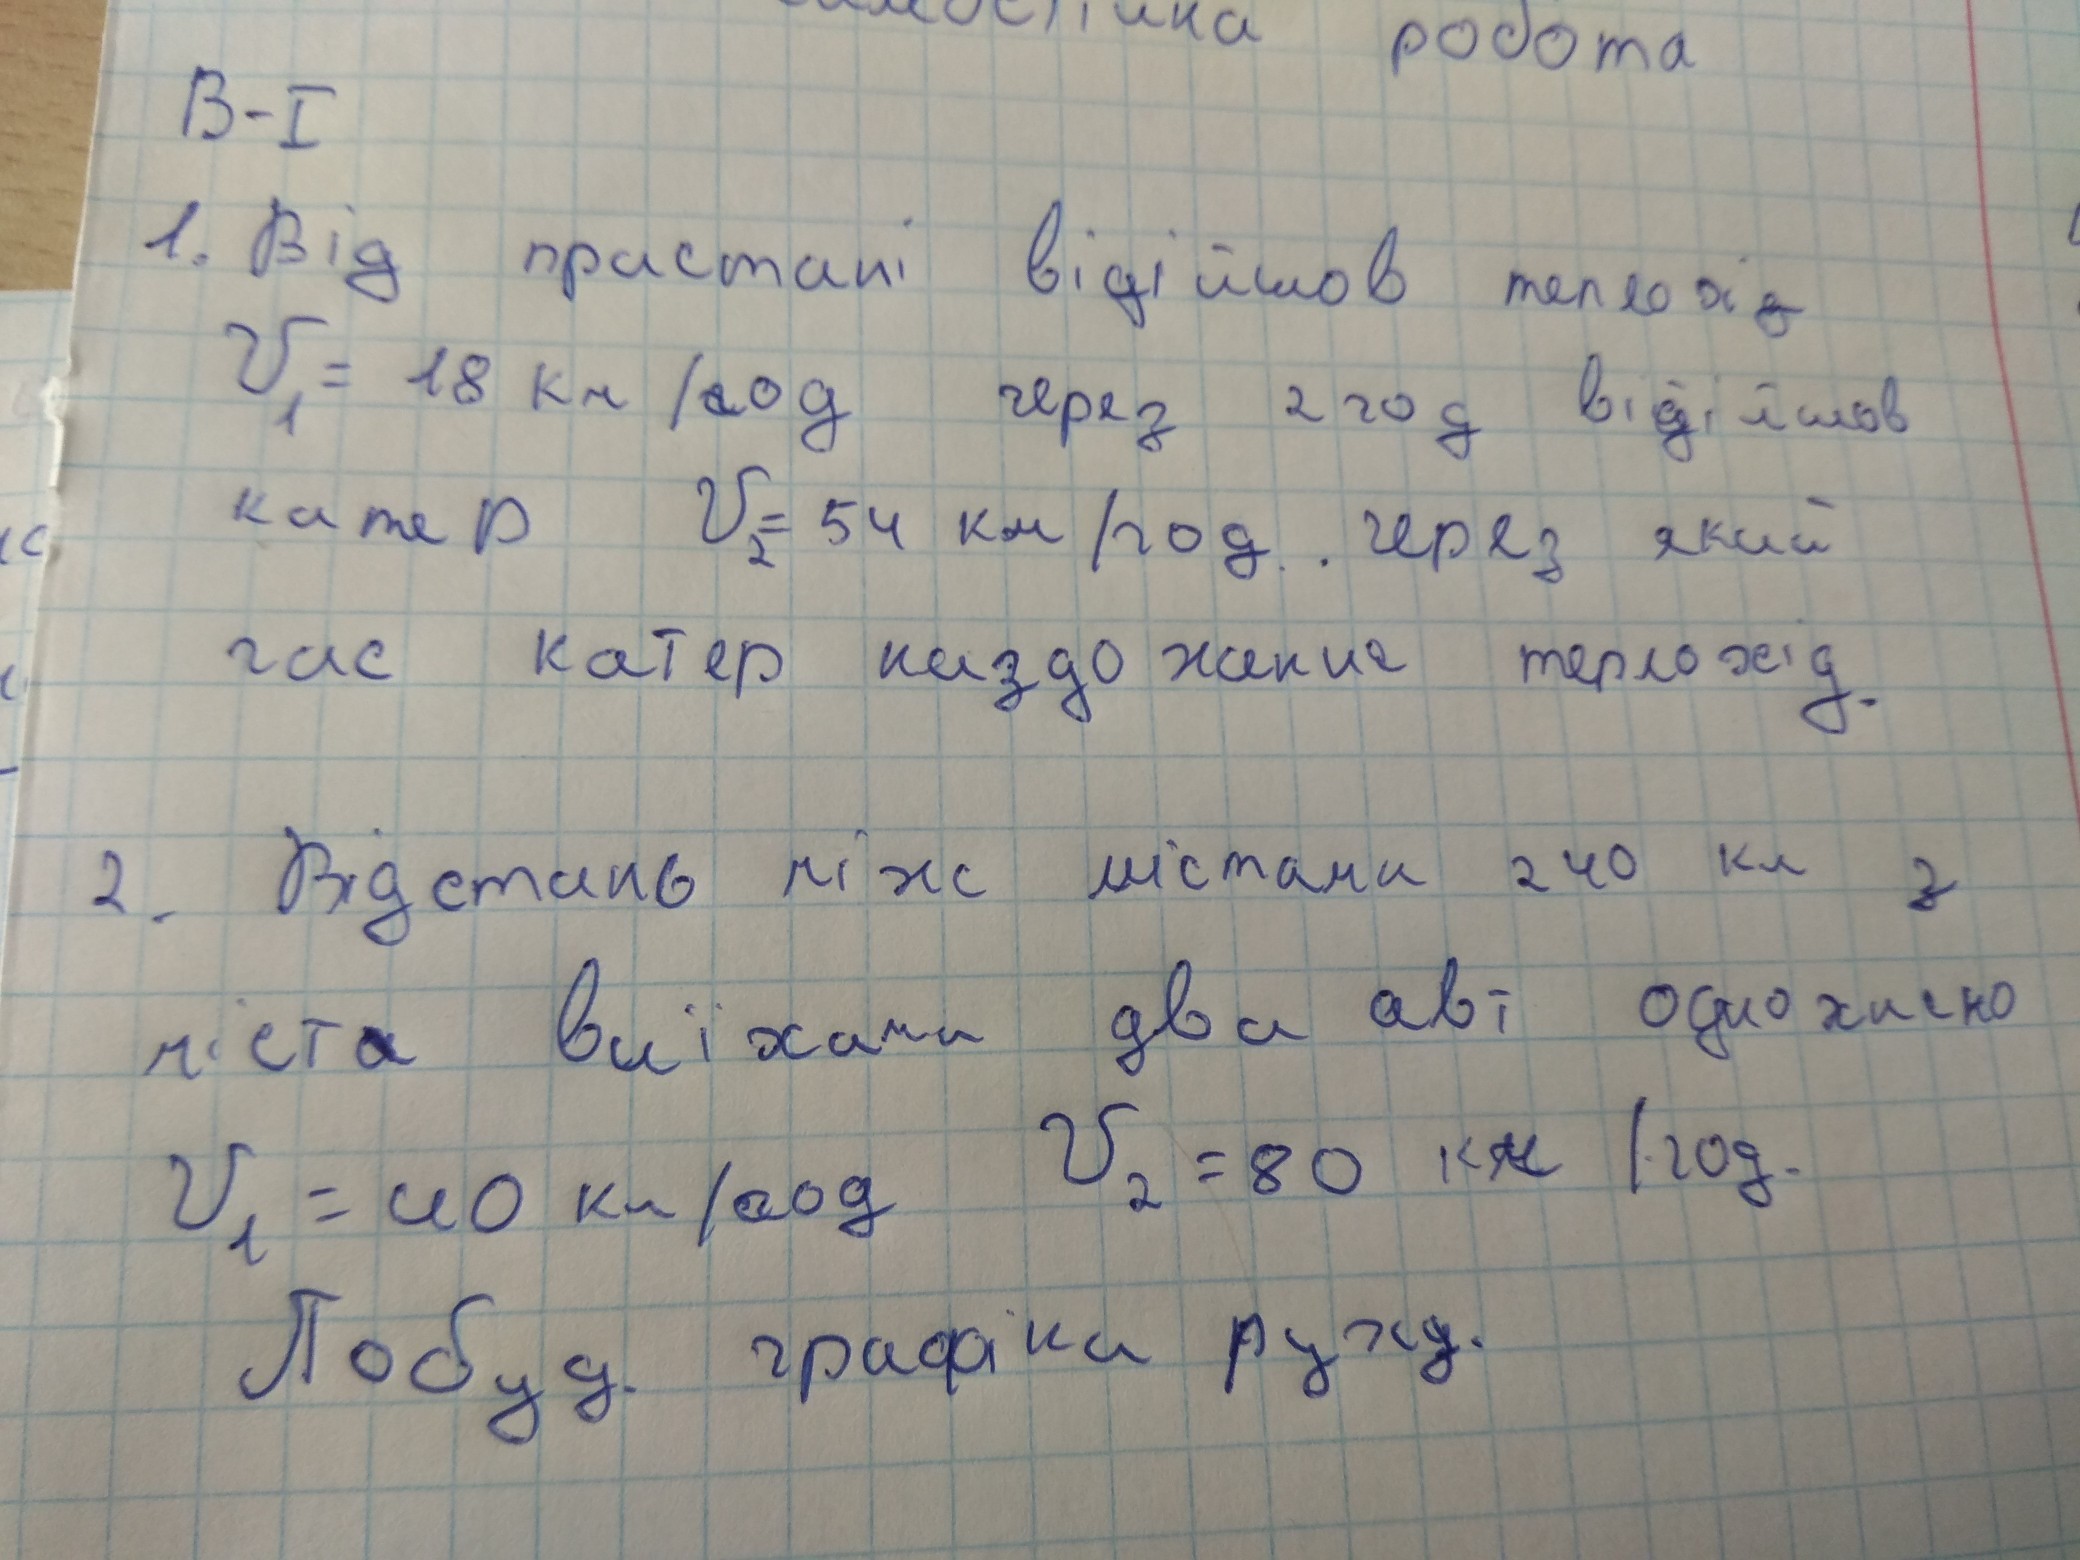 самостійна робота
В-І
1. Від пристані відійшов теплохід
V₁ = 18 км/год через 2 год відійшов
катер V₂ = 54 км/год. через який
час катер наздожене теплохід.
2. Відстань між містами 240 км з
міста виїхали два авт одночасно
V₁ = 40 км/год V₂ = 80 км/год.
Побуд. графіки рухуд.